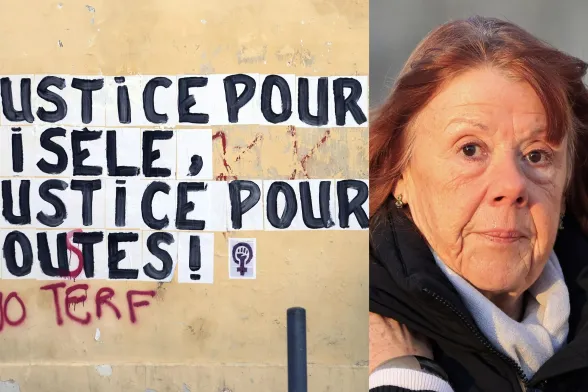 USTiCE POUR
iSELE,
USTiCE POUR
OUTES!
NO TERF